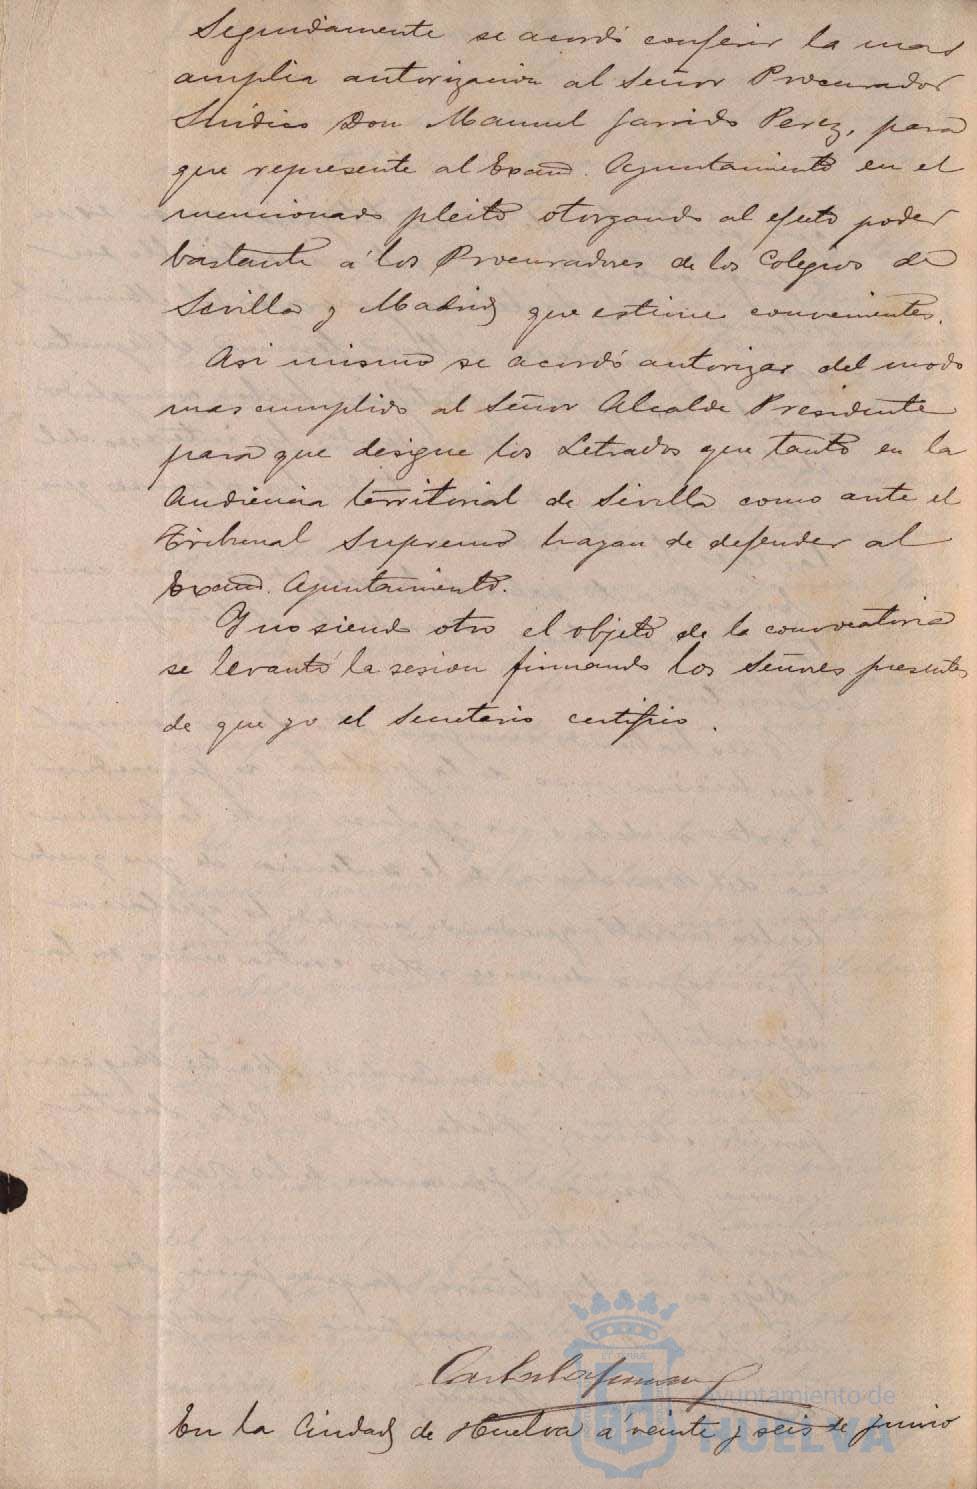 Seguidamente se acordó conferir la mas
amplia autorización al Señor Procurador
Síndico Don Manuel Garrido Perez, para
que represente al Excmo. Ayuntamiento en el
mencionado pleito otorgando al efecto poder
bastante á los Procuradores de los Colegios de
Sevilla y Madrid que estime convenientes.
Asi mismo se acordó autorizar del modo
mas cumplido al Señor Alcalde Presidente
para que designe los Letrados que tanto en la
Audiencia territorial de Sevilla como ante el
Tribunal Supremo hayan de defender al
Excmo. Ayuntamiento.
Y no siendo otro el objeto de la convocatoria
se levantó la sesion firmando los Señores presentes
de que yo el Secretario certifico.
Ayuntamiento de
HUELVA
En la Ciudad de Huelva á veinte y seis de junio